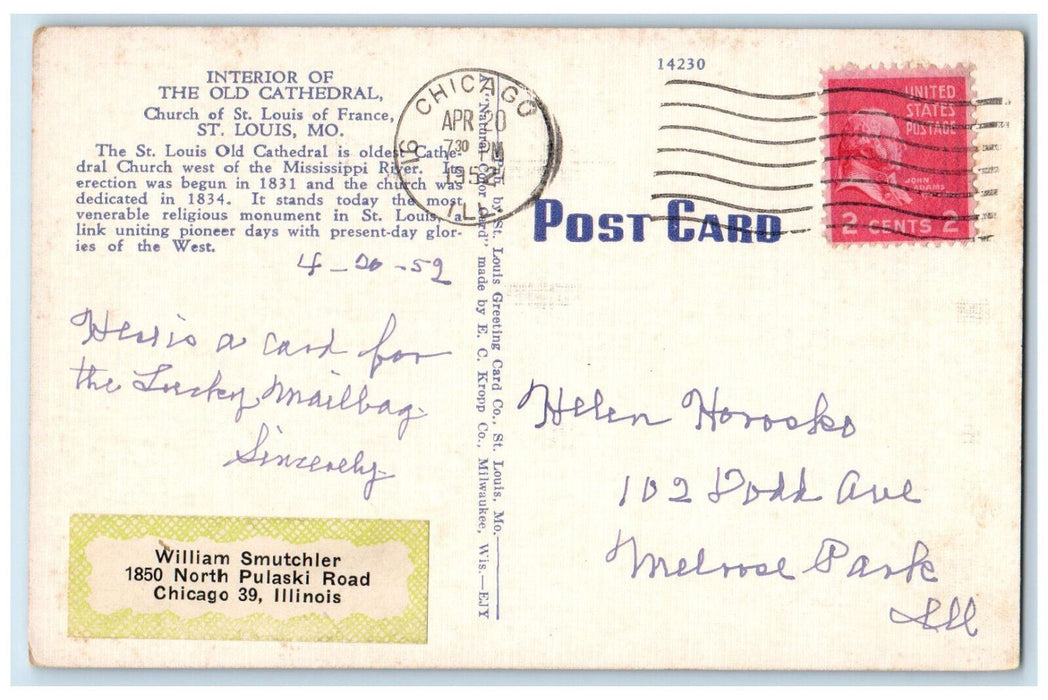 INTERIOR OF
THE OLD CATHEDRAL,
Church of St. Louis of France,
ST. LOUIS, MO.
The St. Louis Old Cathedral is oldest Cathe-
dral Church west of the Mississippi River. Its
erection was begun in 1831 and the church was
dedicated in 1834. It stands today the most
venerable religious monument in St. Louis, a
link uniting pioneer days with present-day glor-
ies of the West.
4-20-52
Here is a card for
the Lucky Mailbag.
Sincerely
William Smutchler
1850 North Pulaski Road
Chicago 39, Illinois
CHICAGO
APR 20
7 30 PM
1952
ILL.
Pub. by St. Louis Greeting Card Co., St. Louis, Mo.
"Natural Color Card" made by E. C. Kropp Co., Milwaukee, Wis.—EJY
14230
POST CARD
UNITED
STATES
POSTAGE
JOHN
ADAMS
2 CENTS 2
Helen Horosko
102 Dodd Ave
Melrose Park
Ill